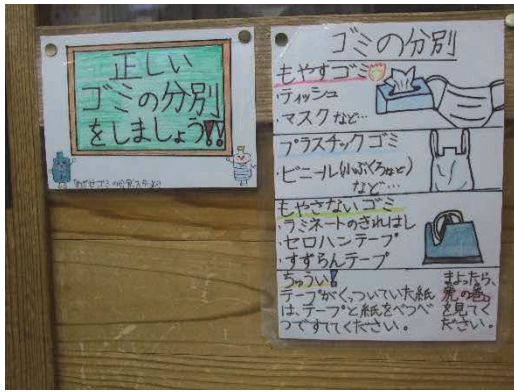 正しい
ゴミの分別
をしましょう!!
ゴミの分別
もやすゴミ
・ティッシュ
・マスクなど…
プラスチックゴミ
・ビニール(小ぶくろなど)
など…
もやさないゴミ
・ラミネートのきれはし
・セロハンテープ
・すずらんテープ
ちゅうい!
テープがくっついていた紙
は、テープと紙をべつべ
つですててください。
まよったら、
虎の巻
を見てく
ださい。